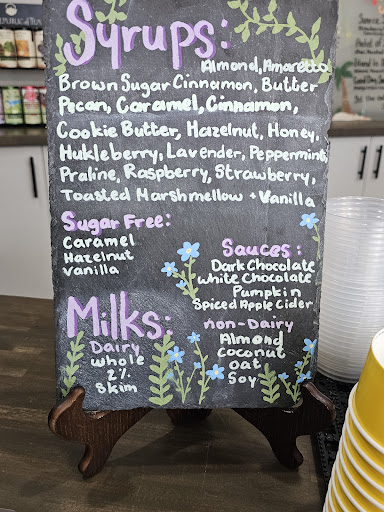 Syrups:
Almond, Amaretto
Brown Sugar Cinnamon, Butter
Pecan, Caramel, Cinnamon,
Cookie Butter, Hazelnut, Honey,
Hukleberry, Lavender, Peppermint,
Praline, Raspberry, Strawberry,
Toasted Marshmellow + Vanilla
Sugar Free:
Caramel
Hazelnut
Vanilla
Sauces:
Dark Chocolate
White Chocolate
Pumpkin
Spiced Apple Cider
Milks:
Dairy
Whole
2%
Skim
non-Dairy
Almond
Coconut
Oat
Soy